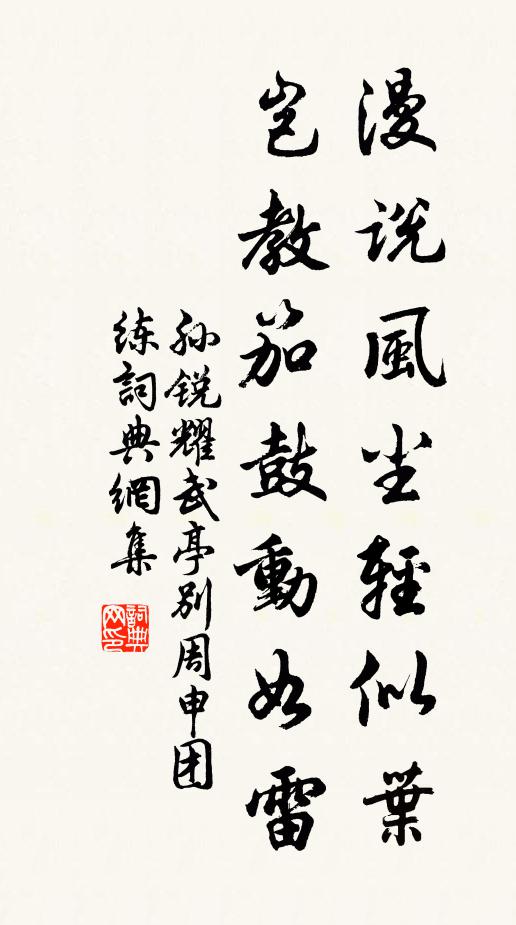 漫説風尘輕似葉
豈教笳鼓動如雷
孙锐耀武亭别周申团
练詞典網集
詞典网印